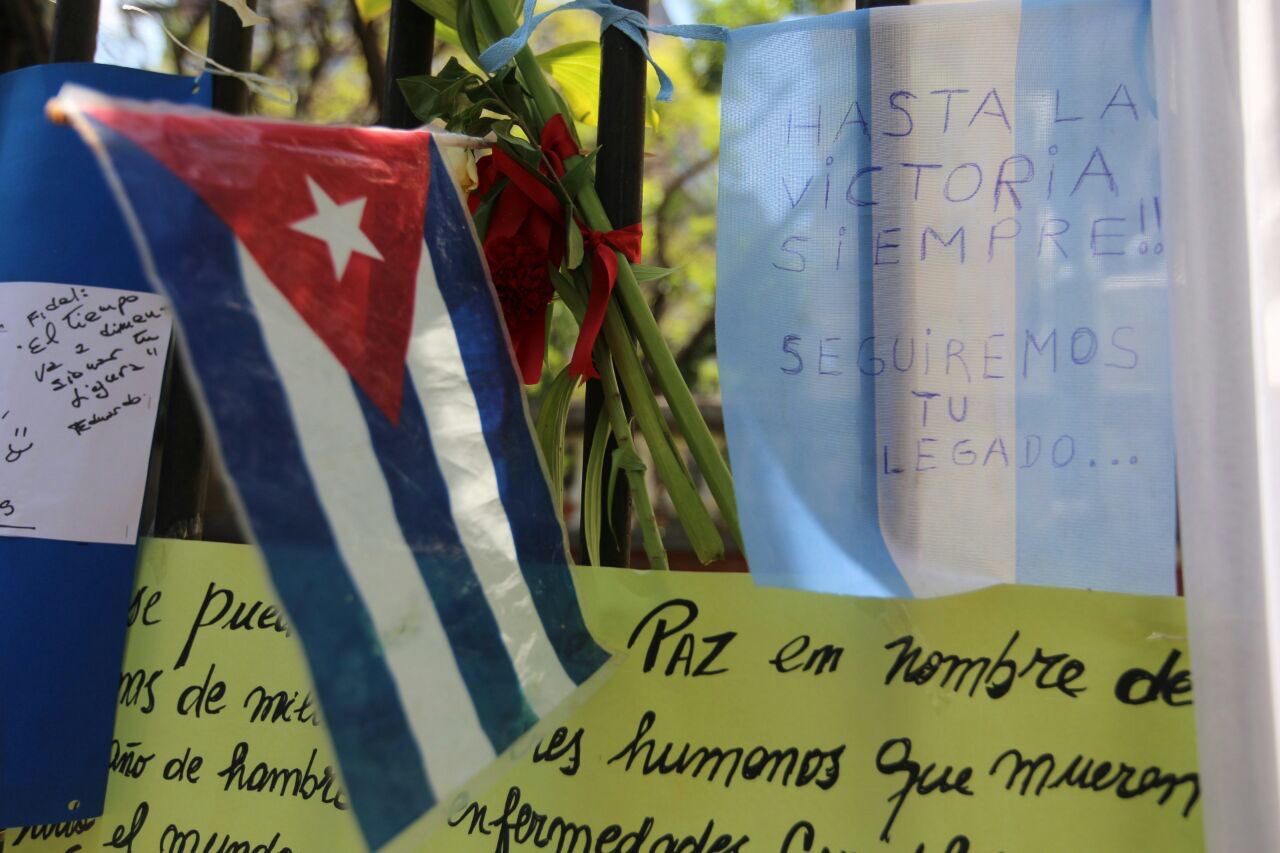 Fidel:
"El tiempo
va a dimen-
sionar tu
figura"
Eduardo.
HASTA LA
VICTORIA
SIEMPRE!!
SEGUIREMOS
TU
LEGADO...
se PAZ em nombre de
de humanos que mueren
año de hambre
el mundo enfermedades